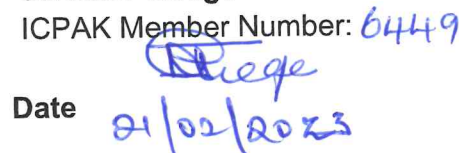 ICPAK Member Number: 6449
Date 21/02/2023